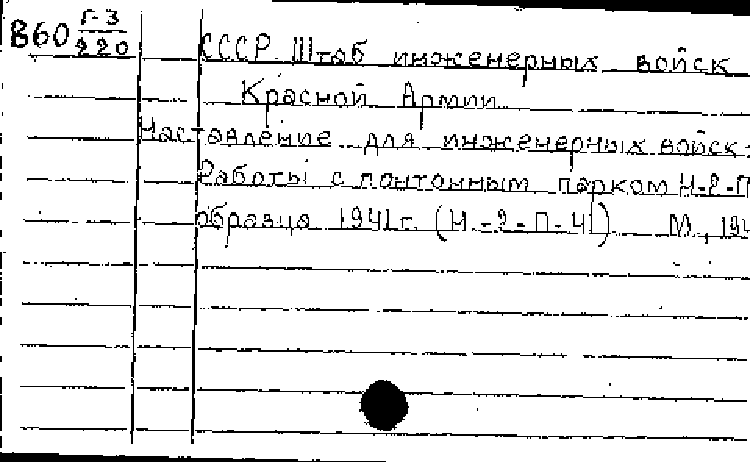 В60 Г-3/220
СССР Штаб инженерных войск
Красной Армии
Наставление для инженерных войск:
Работы с понтонным парком Н-2-П
образца 1941 г. (Н-2-П-41) М., 194